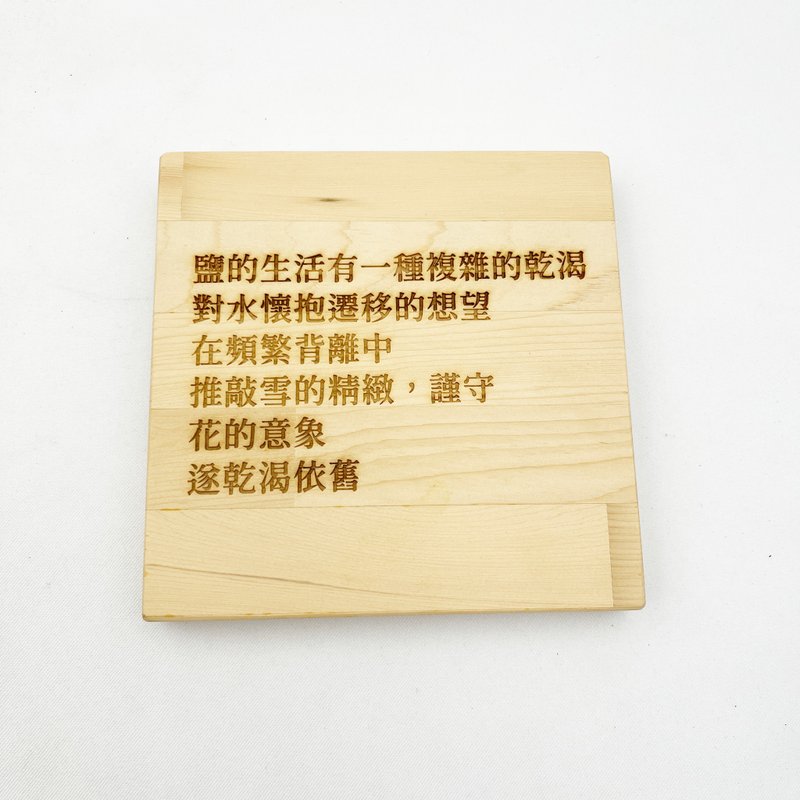 鹽的生活有一種複雜的乾渴
對水懷抱遷移的想望
在頻繁背離中
推敲雪的精緻，謹守
花的意象
遂乾渴依舊